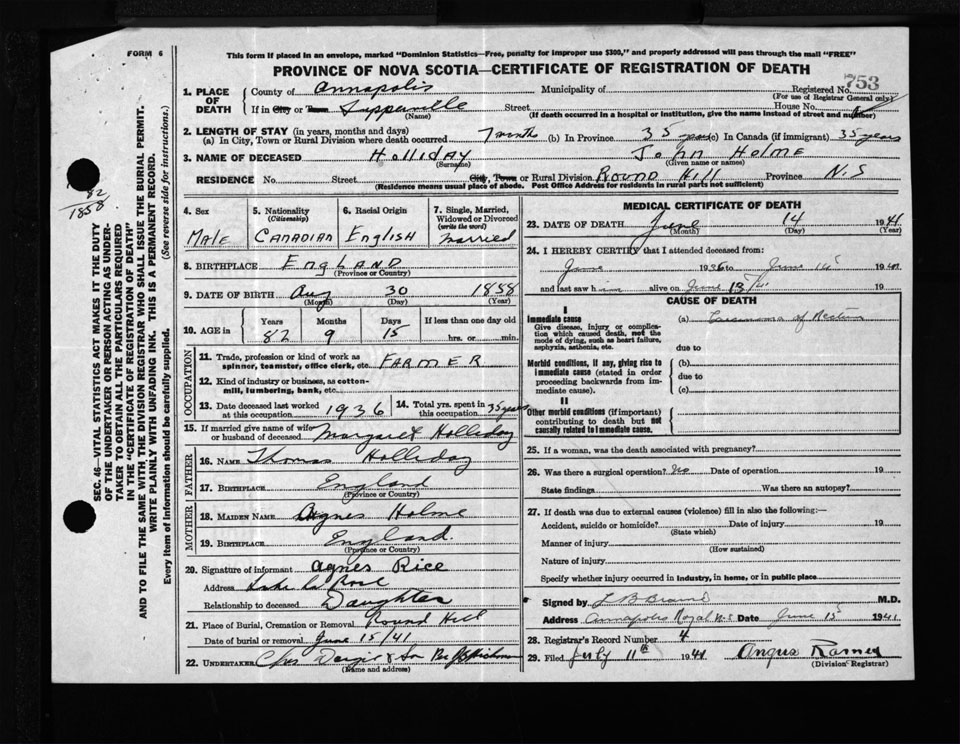 FORM 6
This form if placed in an envelope, marked "Dominion Statistics—Free, penalty for improper use $300," and properly addressed will pass through the mail "FREE"
PROVINCE OF NOVA SCOTIA—CERTIFICATE OF REGISTRATION OF DEATH
753
1. PLACE OF DEATH
County of Annapolis Municipality of Registered No.
(For use of Registrar General only)
If in City or Town Street House No.
(Name) (If death occurred in a hospital or institution, give the name instead of street and number)
2. LENGTH OF STAY (in years, months and days)
(a) In City, Town or Rural Division where death occurred 7 months (b) In Province 35 years (c) In Canada (if immigrant) 35 years
3. NAME OF DECEASED Holliday John Holme
(Surname) (Given name or names)
RESIDENCE No. Street City, Town or Rural Division Round Hill Province N.S
(Residence means usual place of abode. Post Office Address for residents in rural parts not sufficient)
4. Sex Male
5. Nationality (Citizenship) Canadian
6. Racial Origin English
7. Single, Married, Widowed or Divorced (write the word) Married
8. BIRTHPLACE England
(Province or Country)
9. DATE OF BIRTH Aug 30 1858
(Month) (Day) (Year)
10. AGE in
Years Months Days If less than one day old
82 9 15 hrs. or min.
OCCUPATION
11. Trade, profession or kind of work as spinner, teamster, office clerk, etc. FARMER
12. Kind of industry or business, as cotton-mill, lumbering, bank, etc.
13. Date deceased last worked at this occupation 1936
14. Total yrs. spent in this occupation 35 years
15. If married give name of wife or husband of deceased Margaret Holliday
FATHER
16. NAME Thomas Holliday
17. BIRTHPLACE England
(Province or Country)
MOTHER
18. MAIDEN NAME Agnes Holme
19. BIRTHPLACE England.
(Province or Country)
20. Signature of informant Agnes Rice
Address Lake La Rose
Relationship to deceased Daughter
21. Place of Burial, Cremation or Removal Round Hill
Date of burial or removal June 15/41
22. UNDERTAKER & Son Per
(Name and address)
MEDICAL CERTIFICATE OF DEATH
23. DATE OF DEATH June 14 1941
(Month) (Day) (Year)
24. I HEREBY CERTIFY that I attended deceased from:
June 1936 to June 14 1941
and last saw him alive on June 13/41 19
CAUSE OF DEATH
I
Immediate cause
Give disease, injury or complication which caused death, not the mode of dying, such as heart failure, asphyxia, asthenia, etc.
(a) Carcinoma of Rectum
due to
Morbid conditions, if any, giving rise to immediate cause (stated in order proceeding backwards from immediate cause).
(b)
due to
(c)
II
Other morbid conditions (if important) contributing to death but not causally related to immediate cause.
25. If a woman, was the death associated with pregnancy?
26. Was there a surgical operation? No Date of operation 19
State findings Was there an autopsy?
27. If death was due to external causes (violence) fill in also the following:—
Accident, suicide or homicide? Date of injury 19
(State which)
Manner of injury
(How sustained)
Nature of injury
Specify whether injury occurred in industry, in home, or in public place
Signed by L B Braine M.D.
Address Annapolis Royal N.S Date June 15 1941
28. Registrar's Record Number 4
29. Filed July 11th 1941 Angus
(Division Registrar)
82
1858
SEC. 46—VITAL STATISTICS ACT MAKES IT THE DUTY
OF THE UNDERTAKER OR PERSON ACTING AS UNDER-
TAKER TO OBTAIN ALL THE PARTICULARS REQUIRED
IN THE "CERTIFICATE OF REGISTRATION OF DEATH"
AND TO FILE THE SAME WITH THE DIVISION REGISTRAR WHO SHALL ISSUE THE BURIAL PERMIT.
WRITE PLAINLY WITH UNFADING INK. THIS IS A PERMANENT RECORD.
Every item of information should be carefully supplied. (See reverse side for instructions.)